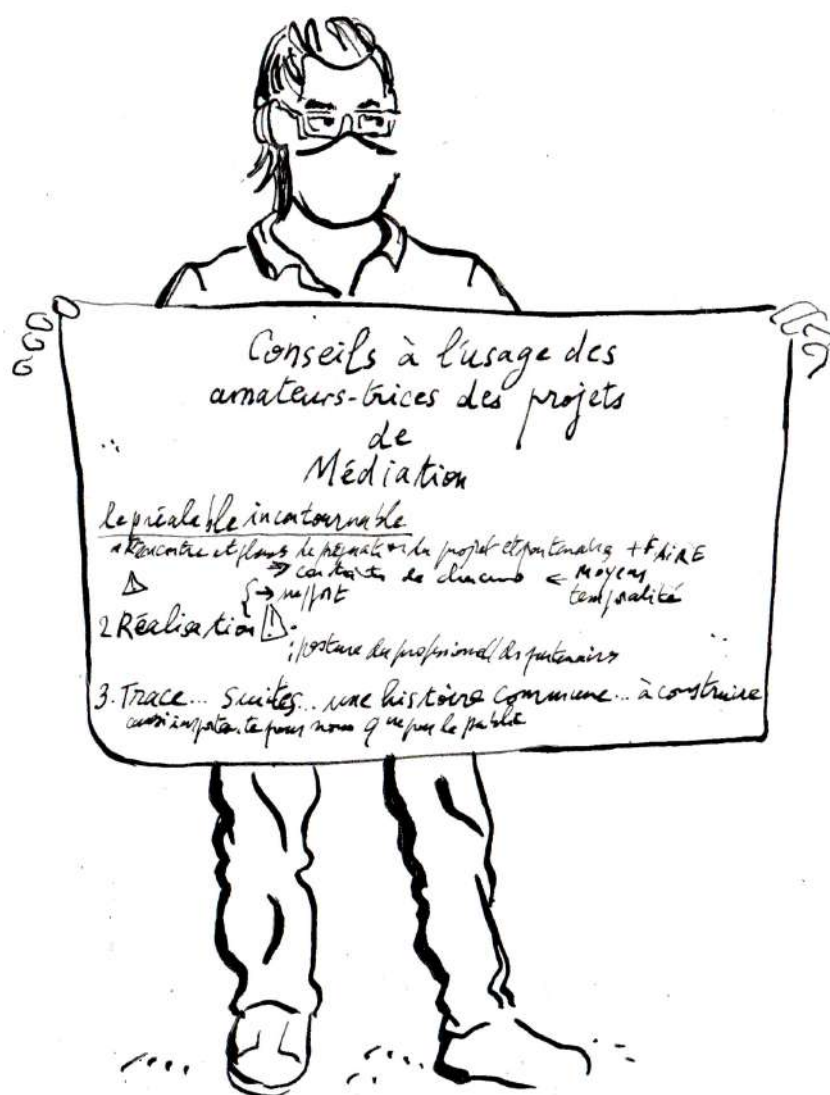 Conseils à l'usage des
amateurs-trices des projets
de
Médiation
le préalable incontournable
Rencontre et du projet et partenaires + FAIRE
→ contraintes de chacun ← moyens
temporalité
2 Réalisation
posture du professionnel/des partenaires
3. Trace... suites... une histoire commune... à construire
aussi importante pour nous que par le public